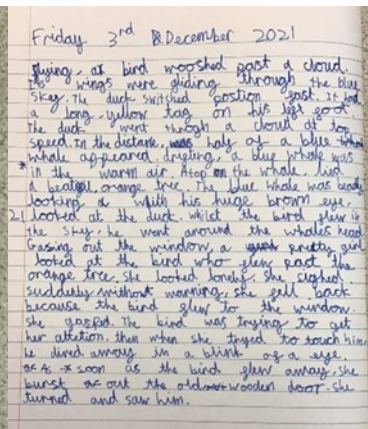 Friday 3rd December 2021
flying, a bird wooshed past a cloud.
It's wings were gliding through the blue
sky. The duck switched postion fast. It had
a long, yellow tag on his left foot.
The duck went throgh a cloud at top
speed. In the distane, half of a blue
whale appeared. drifting, a blue whale was
* in the warm air. Atop on the whale, lied
a beatful, orange tree. The blue whale was
looking with his huge brown eye.
2! looked at the duck. whilst the bird flew in
the sky, he went around the whales head
Gasing out the window, a pretty girl
looked at the bird who flew past the
orange tree. she looked lonely. she sighed.
suddenly without warning, she fell back
because the bird flew to the window.
she gasped. The bird was trying to get
her attetion. then when she tryed to touch him
he dired away in a blink of a eye.
As soon as the bird flew away, she
burst out the old wooden door. she
turned and saw him.